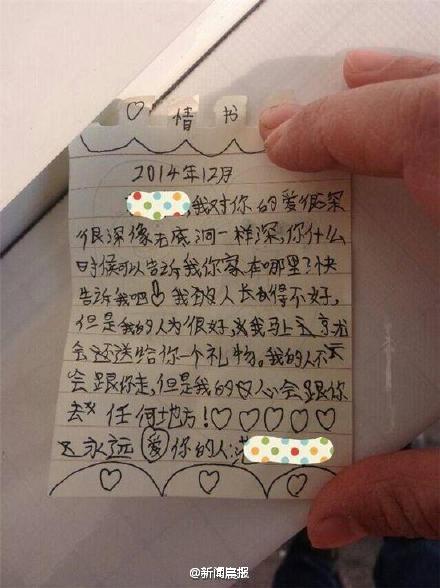 ♡ 情 书
2014年12月
,我对你的爱很深
很深像无底洞一样深,你什么
时候可以告诉我你家在哪里?快
告诉我吧!我本人长得不好,
但是我的人为很好,我马上
会还送给你一个礼物。我的人不
会跟你走,但是我的心会跟你
去 任何地方!♡♡♡♡♡
永远爱你的人:
@新闻晨报